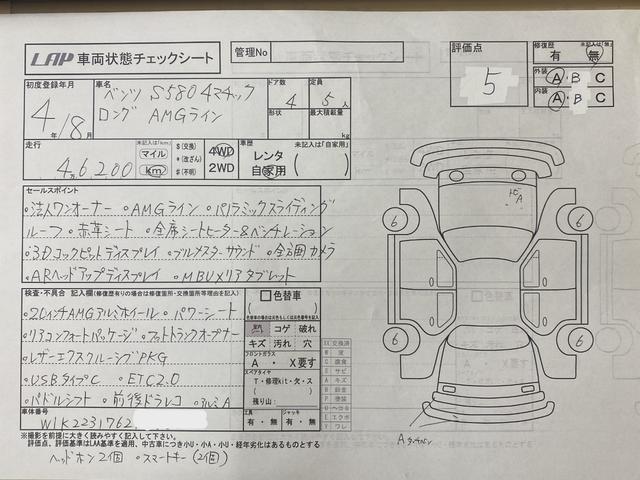 LAP 車両状態チェックシート
管理No
評価点
5
修復歴
未記入は「無」
有 無
外装
A・B C
内装
A・B C
初度登録年月
4年/8月
車名
ベンツ S580 4マチック
ロング AMGライン
ドア数
4
定員
5人
形状
最大積載量
kg
走行
4万6200
未記入は「km」
マイル
km
$(交換)
*(改ざん)
#(不明)
4WD
2WD
車歴
未記入は「自家用」
レンタ
自家用
セールスポイント
・法人ワンオーナー ・AMGライン ・パノラミックスライディング
ルーフ ・赤革シート ・全席シートヒーター&ベンチレーション
・3Dコックピットディスプレイ ・ブルメスターサウンド ・全方囲カメラ
・ARヘッドアップディスプレイ ・MBUXリアタブレット
検査・不具合 記入欄(修復歴有りの場合は修復箇所・交換箇所等理由を記入)
・20インチAMGアルミホイール ・パワーシート
・リアコンフォートパッケージ ・フットトランクオープナー
・レザーエクスクルーシブPKG
・USBタイプC ・ETC2.0
・パドルシフト ・前後ドラレコ
色替車
コゲ 破れ
キズ 汚れ 穴
フロントガラス
A ・ X要す
スペアタイヤ
T・修理kit・欠・ス
残り山
工具
有・無
ジャッキ
有・無
XX 交換済
W 波
C 腐食
S サビ
A キズ
B 鈑金
P 塗装
E エクボ
Y ワレ
6
6
6
6
A
車体番号
W1K2231762
※撮影を前提に大きく読みやすく記入して下さい。
評価点、評価基準はLAA基準を適用、中古車につき小U・小A・小U・経年劣化はあるものとする
ヘッドホン2個 ・スマートキー(2個)